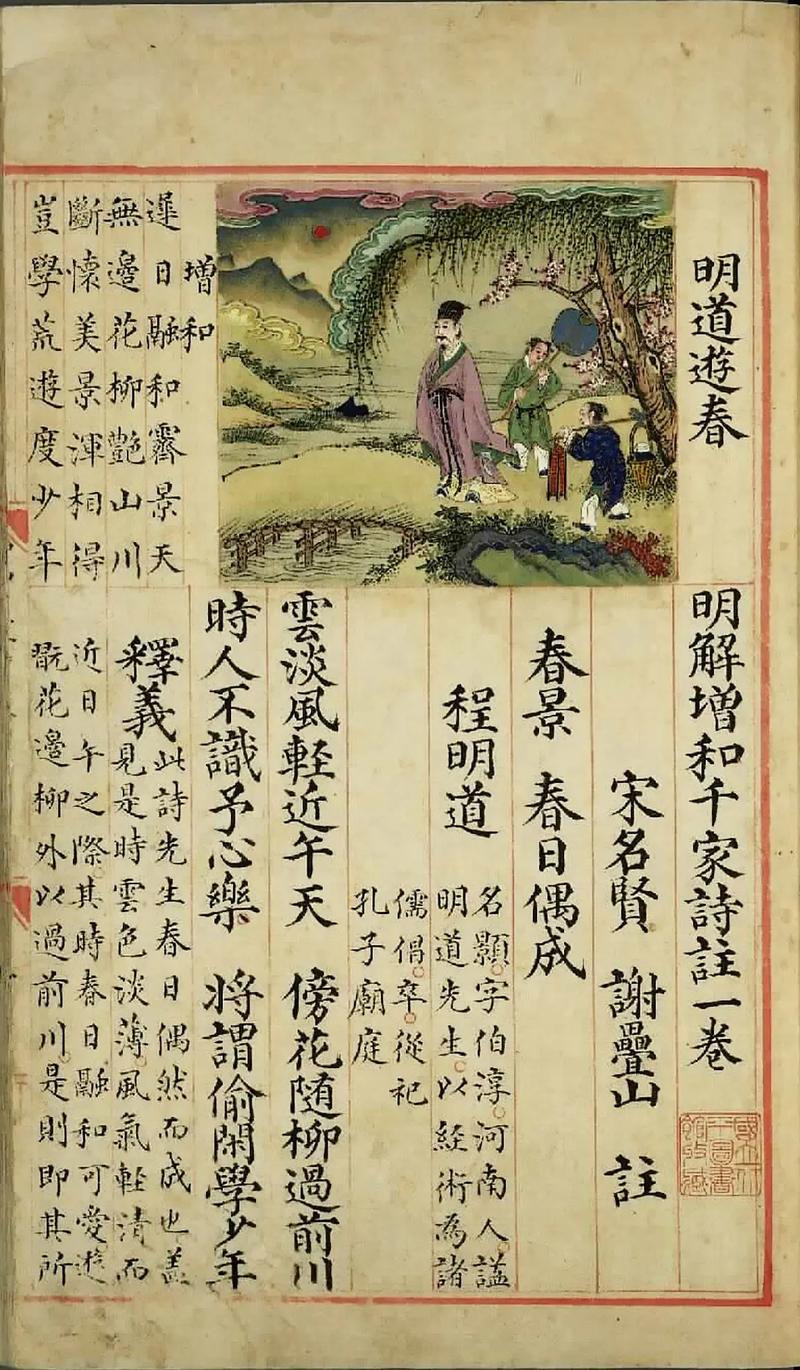 明道遊春
明解增和千家詩註一卷
宋名賢 謝疊山 註
春景 春日偶成
程明道
名顥字伯淳河南人謚
明道先生以經術為諸
儒倡卒從祀
孔子廟庭
雲淡風軽近午天 傍花随柳過前川
時人不識予心樂 將謂偷閑學少年
釋義
此詩先生春日偶然而成也盖
見是時雲色淡薄風氣軽清而
近日午之際其時春日融和可愛遊
翫花邊柳外以過前川是則即其所
增和
遲日融和霽景天
無邊花柳艷山川
斷懷美景渾相得
豈學荒遊度少年